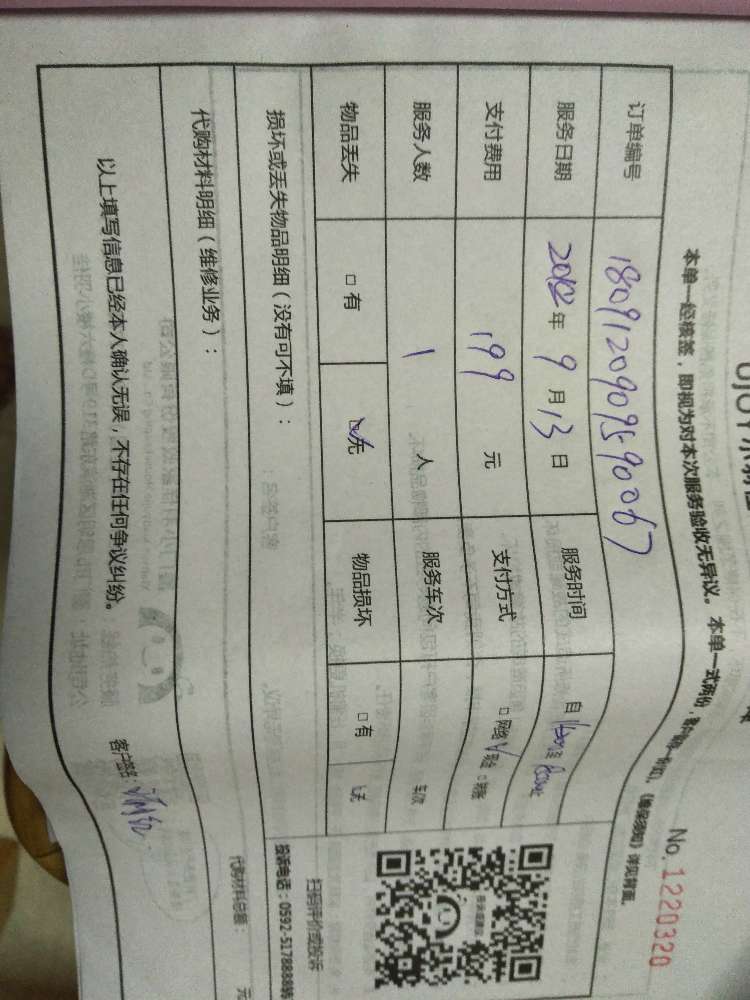 No. 1220320
本单一经核签，即视为对本次服务验收无异议。本单一式两份，
订单编号 1809120909590067
服务日期 2018年 9 月 13 日 服务时间 自
支付费用 199 元 支付方式 □网络
服务人数 1 人 服务车次 车次
物品丢失 □有 ☑无 物品损坏 □有 无
损坏或丢失物品明细（没有可不填）：
扫码评价或投诉
投诉电话：0592-5178888转
代购材料明细（维修业务）：
代购材料总额： 元
以上填写信息已经本人确认无误，不存在任何争议纠纷。
客户签名：